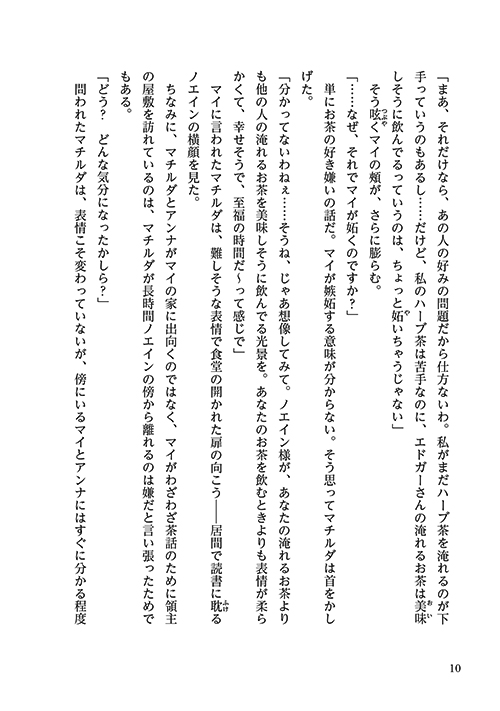 「まあ、それだけなら、あの人の好みの問題だから仕方ないわ。私がまだハーブ茶を淹れるのが下
手っていうのもあるし……だけど、私のハーブ茶は苦手なのに、エドガーさんの淹れるお茶は美味
しそうに飲んでるっていうのは、ちょっと妬いちゃうじゃない」
　そう呟くマイの頬が、さらに膨らむ。
「……なぜ、それでマイが妬くのですか？」
　単にお茶の好き嫌いの話だ。マイが嫉妬する意味が分からない。そう思ってマチルダは首をかし
げた。
「分かってないわねぇ……そうね、じゃあ想像してみて。ノエイン様が、あなたの淹れるお茶より
も他の人の淹れるお茶を美味しそうに飲んでる光景を。あなたのお茶を飲むときよりも表情が柔ら
かくて、幸せそうで、至福の時間だ～って感じで」
　マイに言われたマチルダは、難しそうな表情で食堂の開かれた扉の向こう――居間で読書に耽る
ノエインの横顔を見た。
　ちなみに、マチルダとアンナがマイの家に出向くのではなく、マイがわざわざ茶話のために領主
の屋敷を訪れているのは、マチルダが長時間ノエインの傍から離れるのは嫌だと言い張ったためで
もある。
「どう？　どんな気分になったかしら？」
　問われたマチルダは、表情こそ変わっていないが、傍にいるマイとアンナにはすぐに分かる程度
10